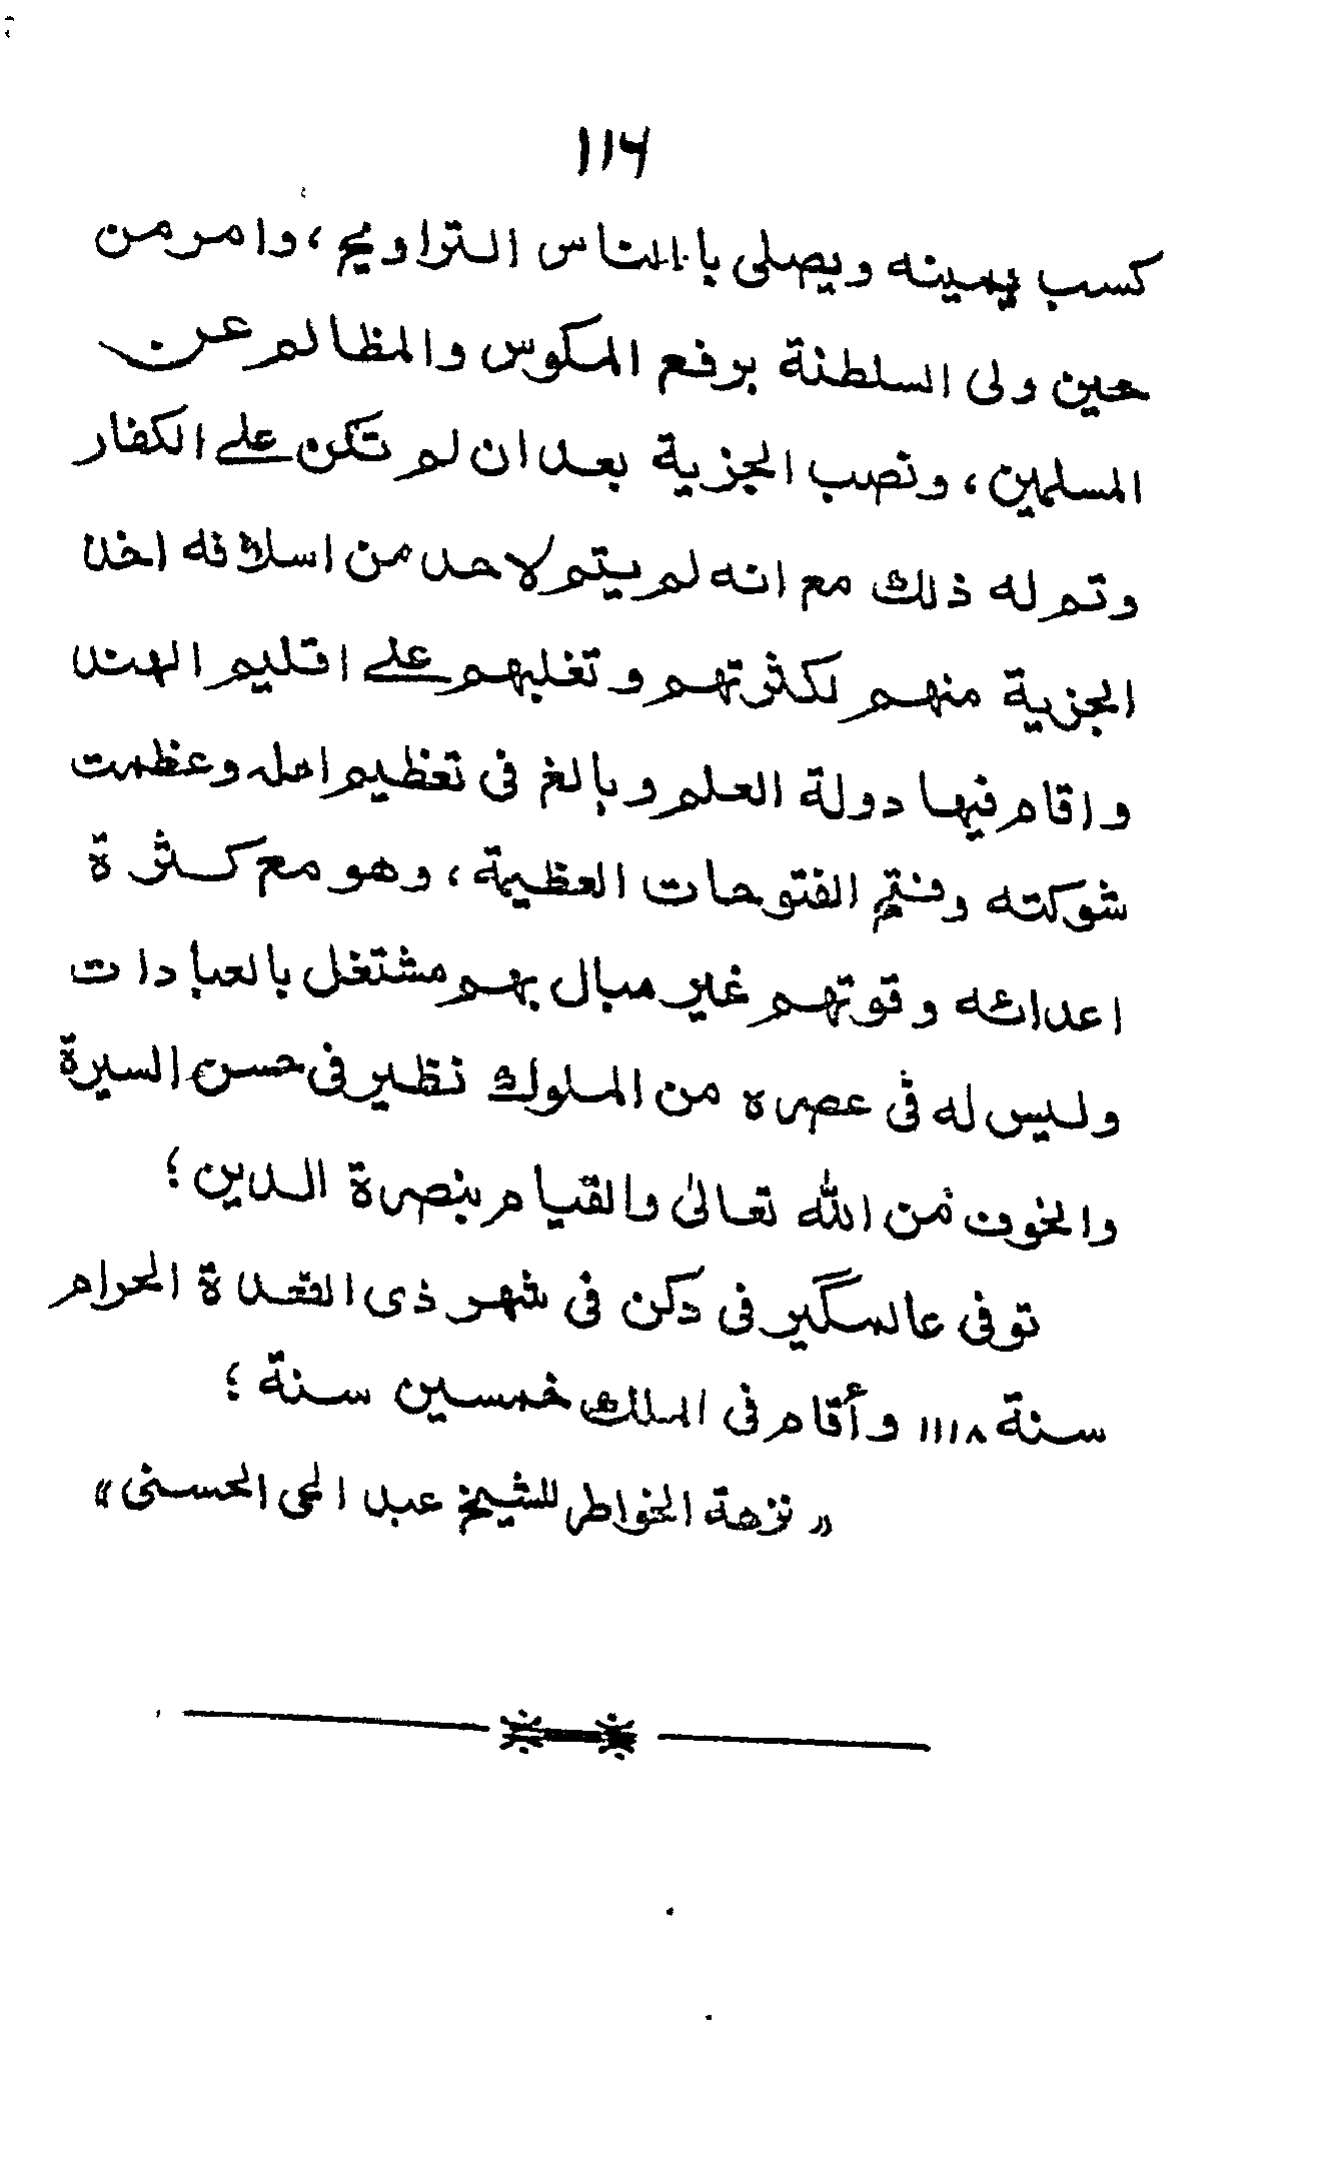 ۱۱۶
كسب يمينه ويصلى بالناس التراويح ، وامر من
حين ولى السلطنة برفع المكوس والمظالم عن
المسلمين ، ونصب الجزية بعد ان لم تكن علے الكفار
وتم له ذلك مع انه لم يتم لاحد من اسلافه اخذ
الجزية منهم لكثرتهم وتغلبهم علے اقليم الهند
واقام فيها دولة العلم وبالغ فى تعظيم اهله وعظمت
شوكته وفتح الفتوحات العظيمة ، وهو مع كثرة
اعدائه وقوتهم غير مبال بهم مشتغل بالعبادات
وليس له فى عصره من الملوك نظير فى حسن السيرة
والخوف من الله تعالىٰ والقيام بنصرة الدين ؛
توفى عالمگير فى دكن فى شهر ذى القعدة الحرام
سنة ١١١٨ وأقام فى الملك خمسين سنة ؛
« نزهة الخواطر للشيخ عبد الحى الحسنى »